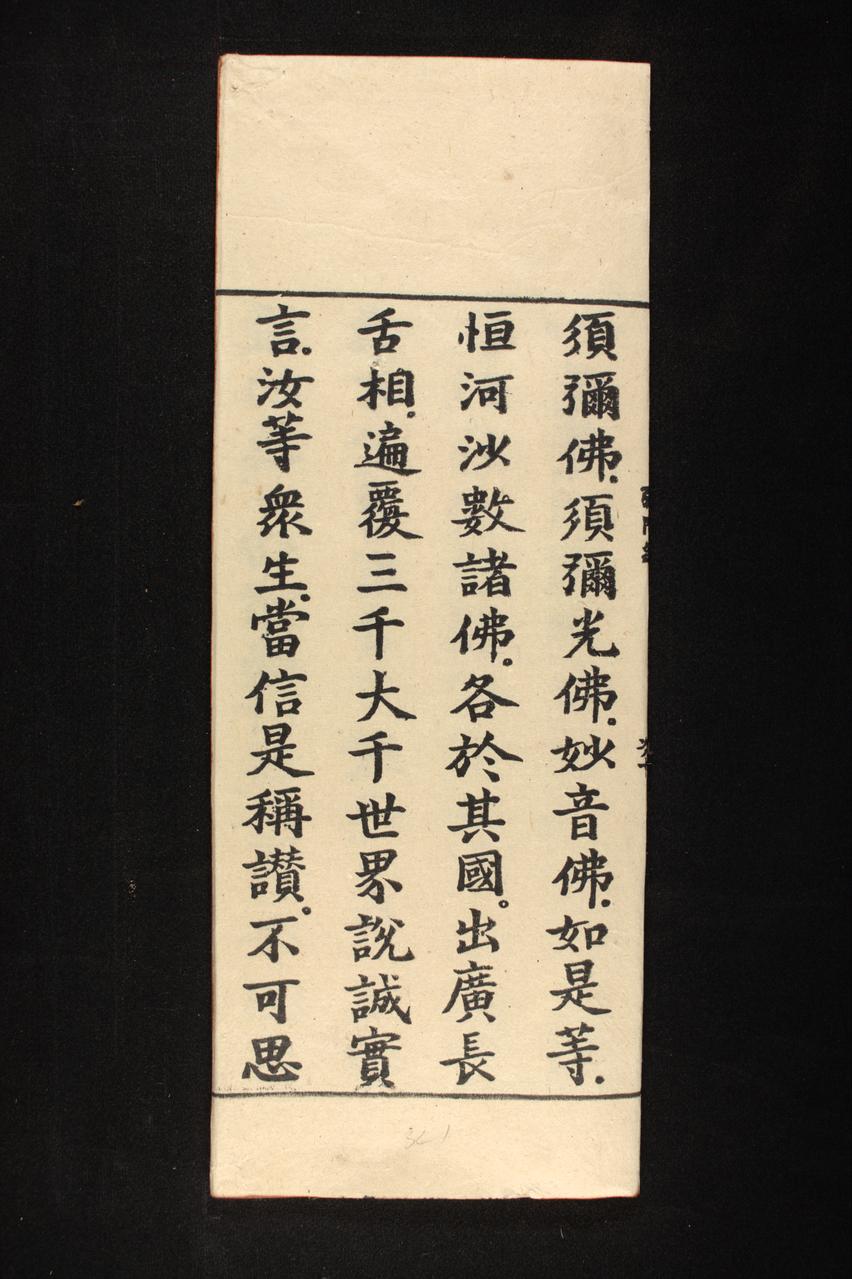 須彌佛.須彌光佛.妙音佛.如是等.
恒河沙數諸佛。各於其國。出廣長
舌相。遍覆三千大千世界說誠實
言.汝等衆生.當信是稱讃。不可思